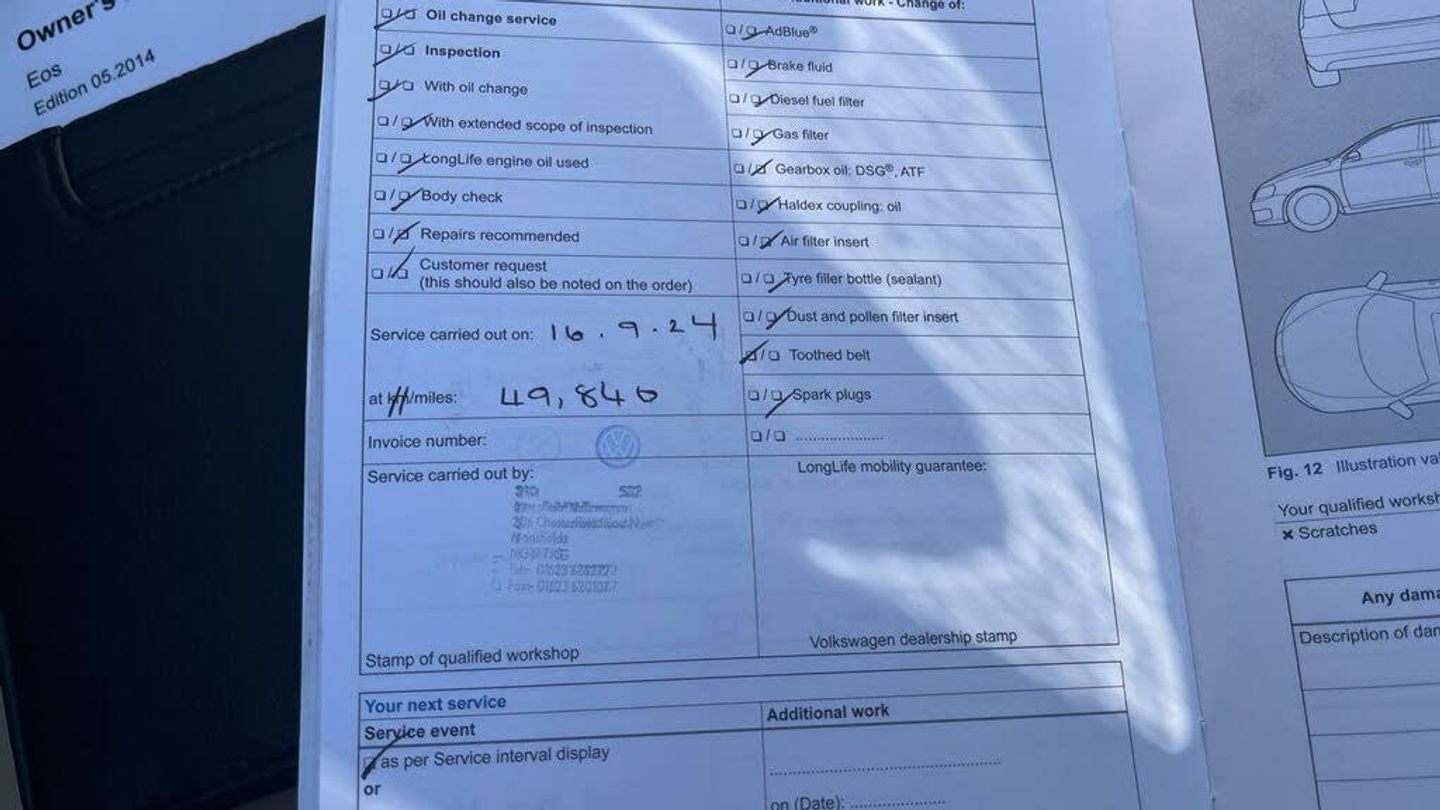 Owner's
Eos
Edition 05.2014
work - Change of:
❑/❑ Oil change service
❑/❑ Inspection
❑/❑ With oil change
❑/❑ With extended scope of inspection
❑/❑ LongLife engine oil used
❑/❑ Body check
❑/❑ Repairs recommended
❑/❑ Customer request
(this should also be noted on the order)
Service carried out on: 16.9.24
at km/miles: 49,846
Invoice number:
Service carried out by:
Stamp of qualified workshop
❑/❑ AdBlue®
❑/❑ Brake fluid
❑/❑ Diesel fuel filter
❑/❑ Gas filter
❑/❑ Gearbox oil: DSG®, ATF
❑/❑ Haldex coupling: oil
❑/❑ Air filter insert
❑/❑ Tyre filler bottle (sealant)
❑/❑ Dust and pollen filter insert
❑/❑ Toothed belt
❑/❑ Spark plugs
❑/❑ ......................
LongLife mobility guarantee:
Volkswagen dealership stamp
Your next service
Service event
as per Service interval display
or
Additional work
on (Date): ......................
Fig. 12 Illustration
Your qualified
× Scratches
Any
Description of